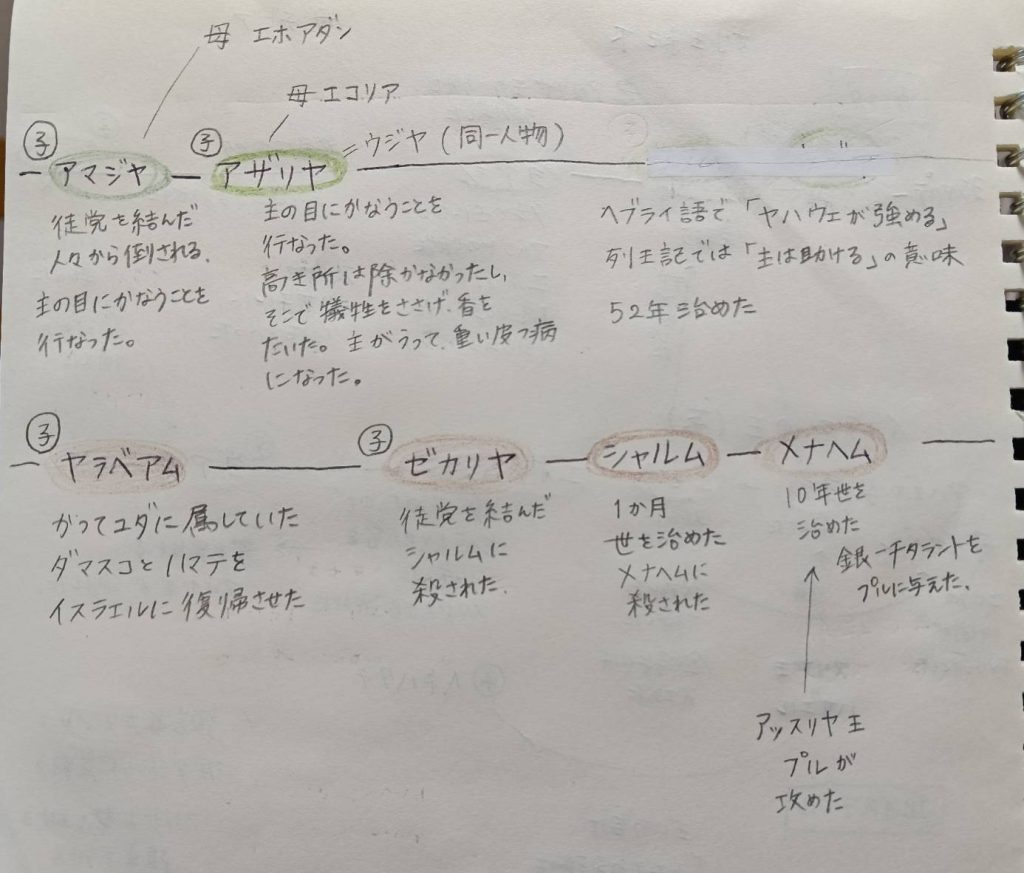 母 エホアダン
母 エコリア
子 子
アマジヤ アザリヤ =ウジヤ(同一人物)
徒党を結んだ
人々から倒される.
主の目にかなうことを
行なった。
主の目にかなうことを
行なった。
高き所は除かなかったし,
そこで犠牲をささげ、香を
たいた。主がうって、重い皮つ病
になった。
ヘブライ語で「ヤハウェが強める」
列王記では「主は助ける」の意味
52年治めた
子 子
ヤラベアム ゼカリヤ シャルム メナヘム
かつてユダに属していた
ダマスコとハマテを
イスラエルに復帰させた
徒党を結んだ
シャルムに
殺された.
1か月
世を治めた
メナヘムに
殺された
10年世を
治めた
銀一千タラントを
プルに与えた.
アッスリヤ王
プルが
攻めた